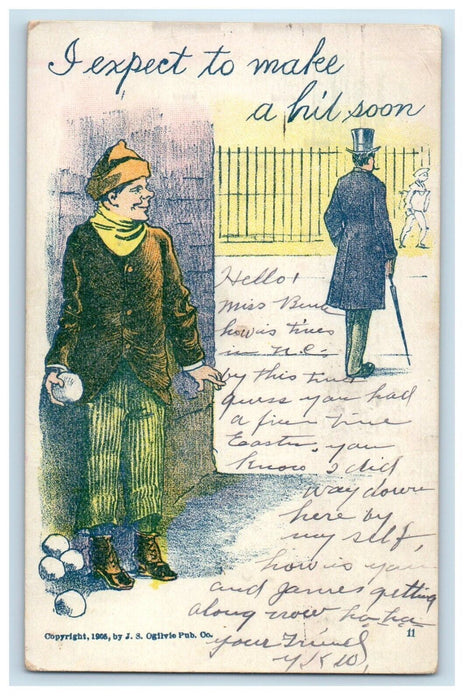 I expect to make
a hit soon
Hello!
Miss
how is times
in N.C.
by this time
guess you had
a fine time
Easter, you
know I did
way down
here by
my self,
how is you
and James getting
along now ha-ha
your Friend
Copyright, 1905, by J. S. Ogilvie Pub. Co.
11